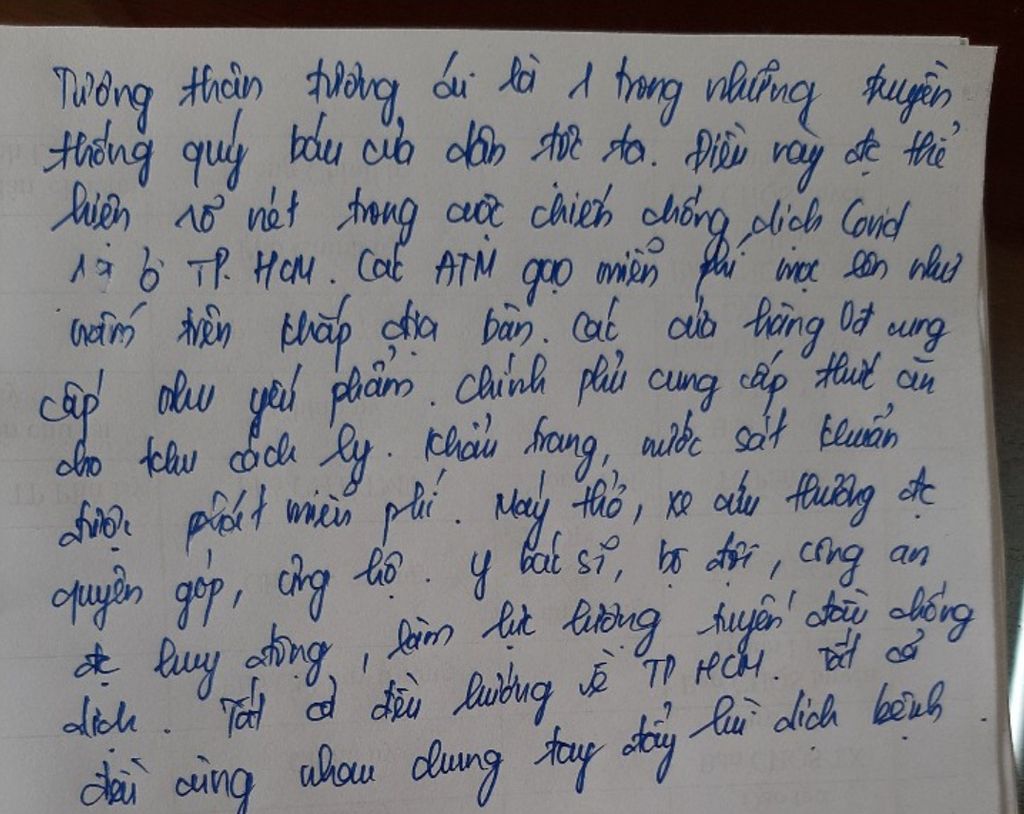 Tương thân tương ái là 1 trong những truyền
thống quý báu của dân tộc ta. Điều này đc thể
hiện rõ nét trong cuộc chiến chống dịch Covid
19 ở TP. HCM. Các ATM gạo miễn phí mọc lên như
nấm trên khắp địa bàn. Các cửa hàng 0đ cung
cấp nhu yếu phẩm. Chính phủ cung cấp thức ăn
cho khu cách ly. Khẩu trang, nước sát khuẩn
được phát miễn phí. Máy thở, xe cứu thương đc
quyên góp, ủng hộ. Y bác sĩ, bộ đội, công an
đc huy động, làm lực lượng tuyến đầu chống
dịch. Tất cả đều hướng về TP HCM. Tất cả
đều cùng nhau chung tay đẩy lùi dịch bệnh.